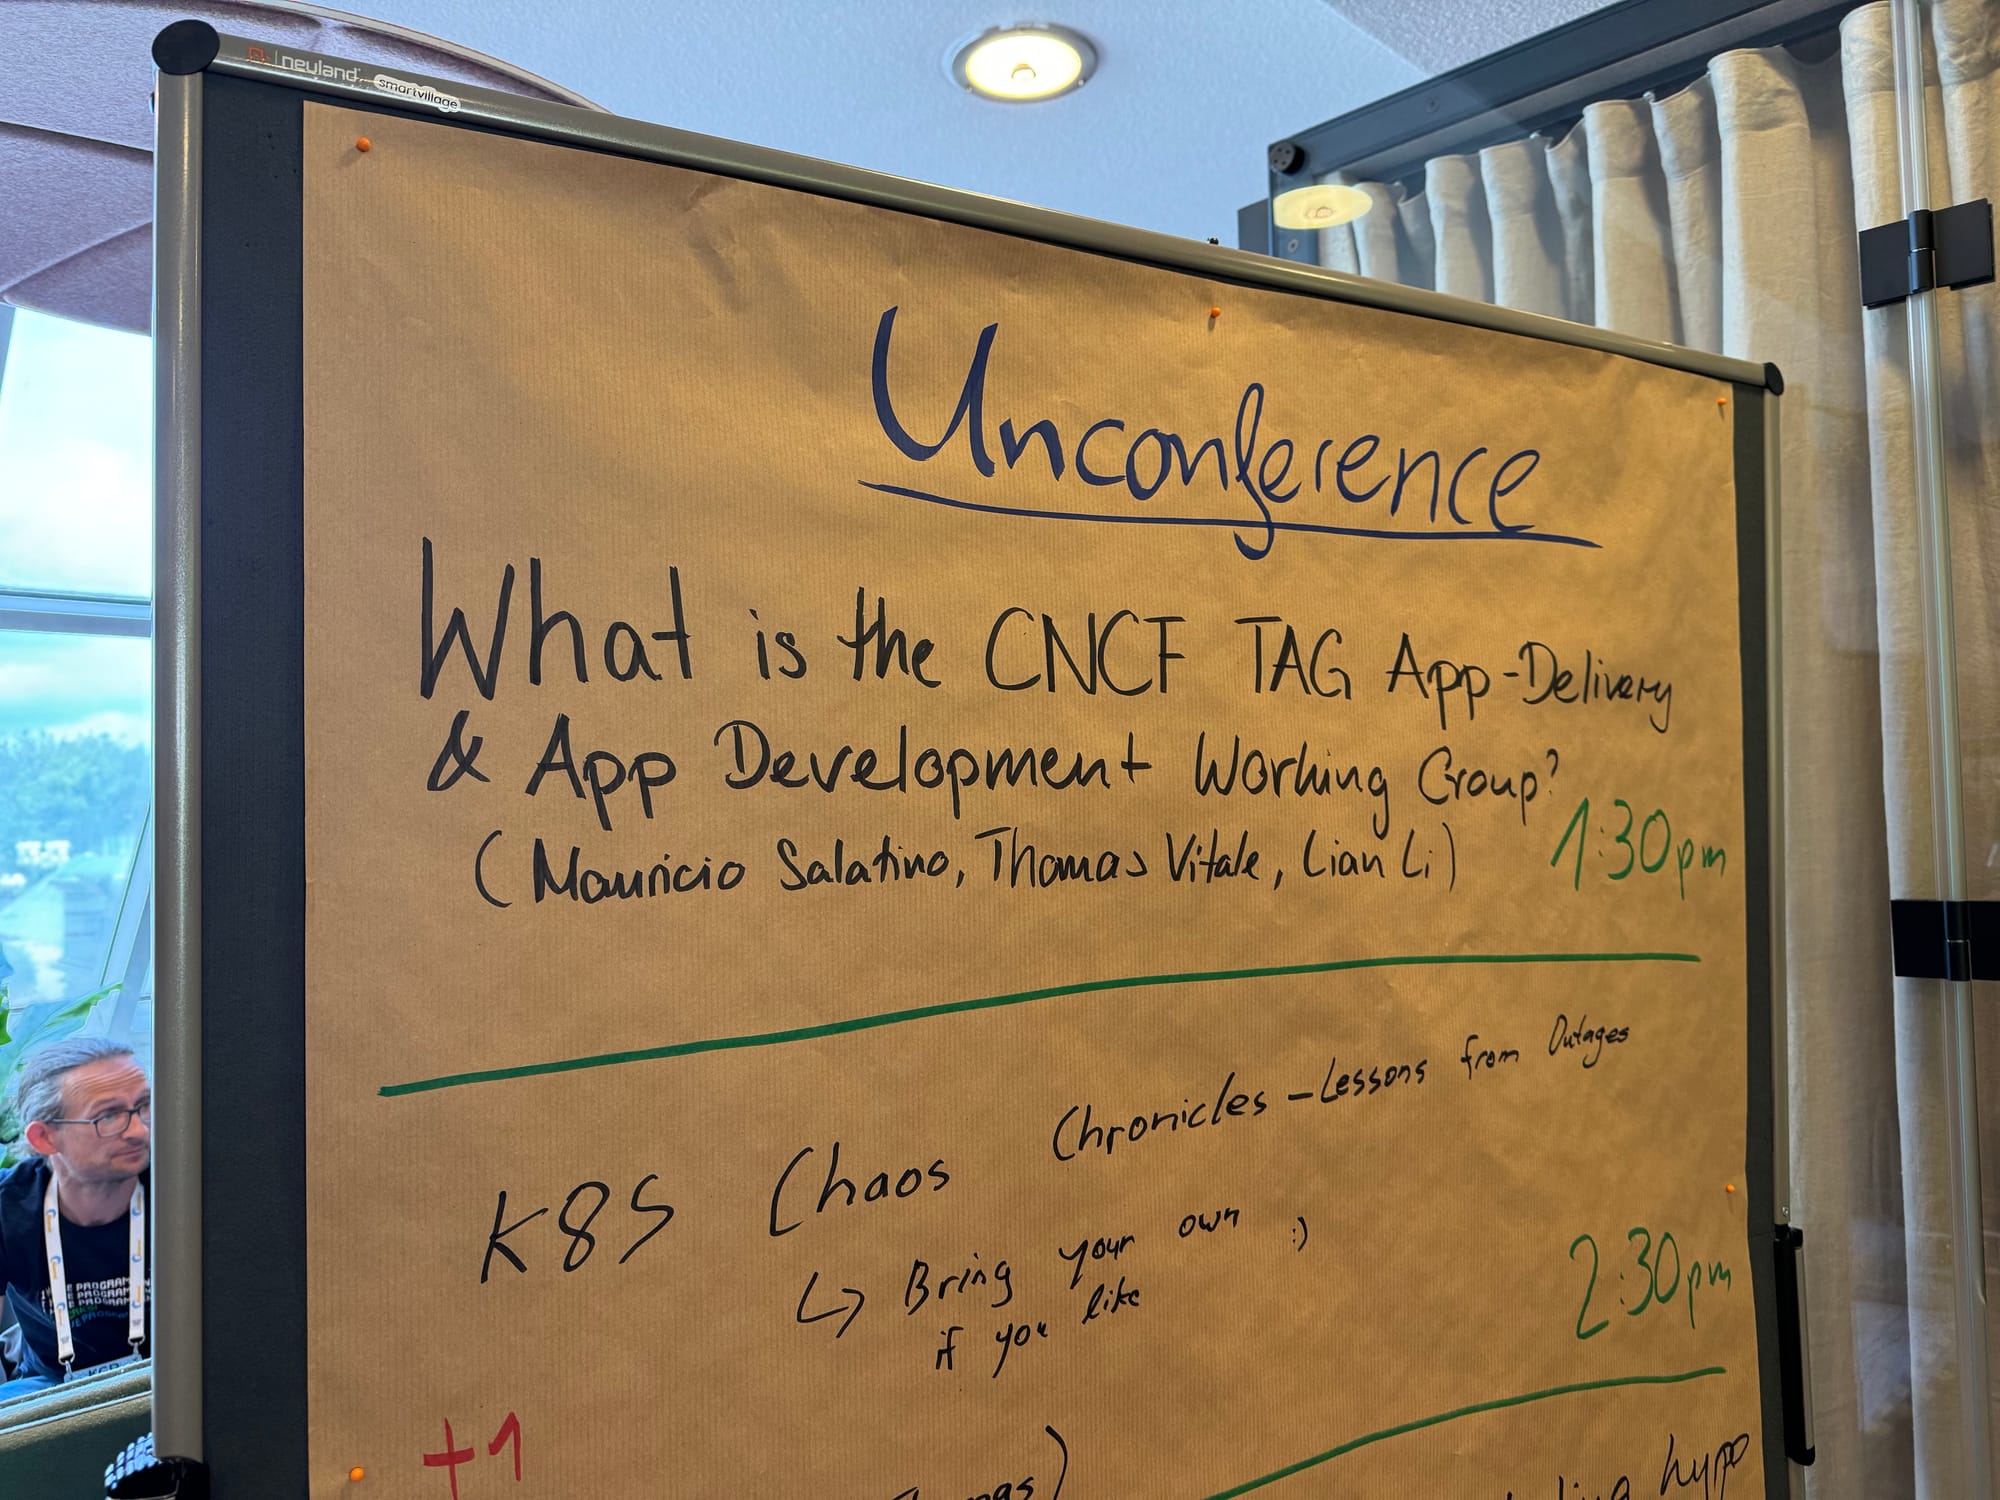 neuland
smartvillage
Unconference
What is the CNCF TAG App-Delivery
& App Development Working Group?
(Mauricio Salatino, Thomas Vitale, Lian Li)
1:30pm
K8S Chaos Chronicles – Lessons from Outages
↳ Bring your own :)
if you like
2:30pm
+1
hypo